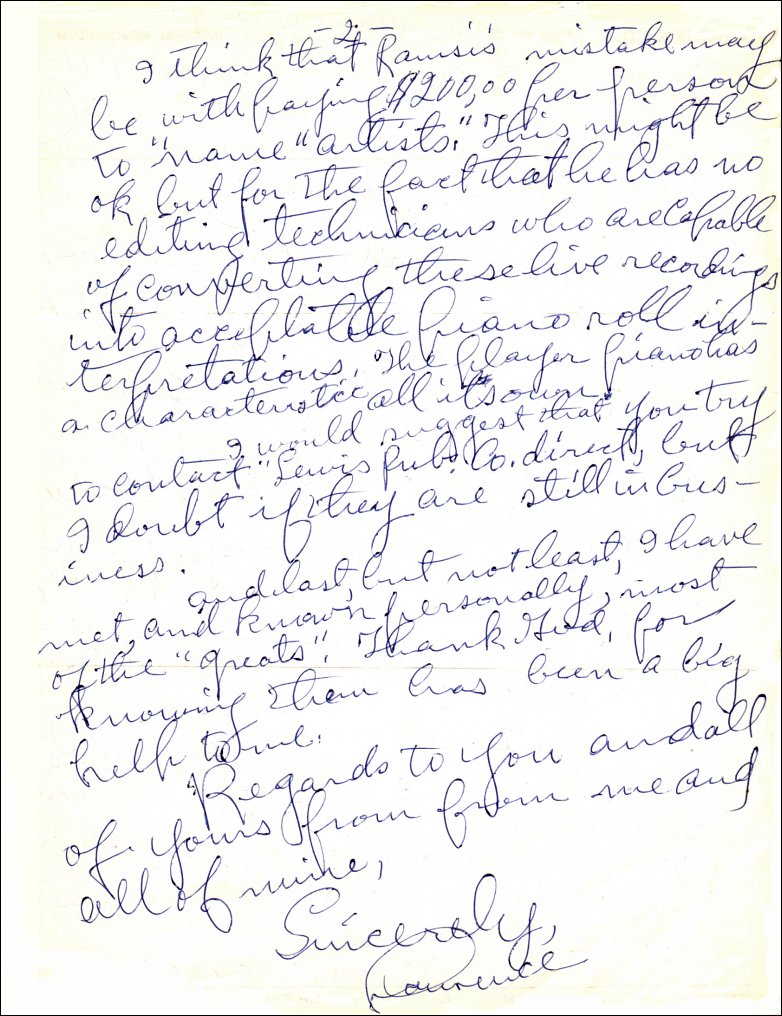 -2-
I think that Ramsi's mistake may
be with paying $200,00 per person
to "name" artists." This might be
ok, but for the fact that he has no
editing technicians who are capable
of converting these live recordings
into acceptable piano roll in-
terpretations. The player piano has
a characteristic all it's own.
I would suggest that you try
to contact "Lewis Pub. Co. direct, but
I doubt if they are still in bus-
iness.
And last, but not least, I have
met, and known personally, most
of the "greats". Thank God, for
knowing them has been a big
help to me.
Regards to you and all
of yours from from me and
all of mine,
Sincerely,
Lawrence